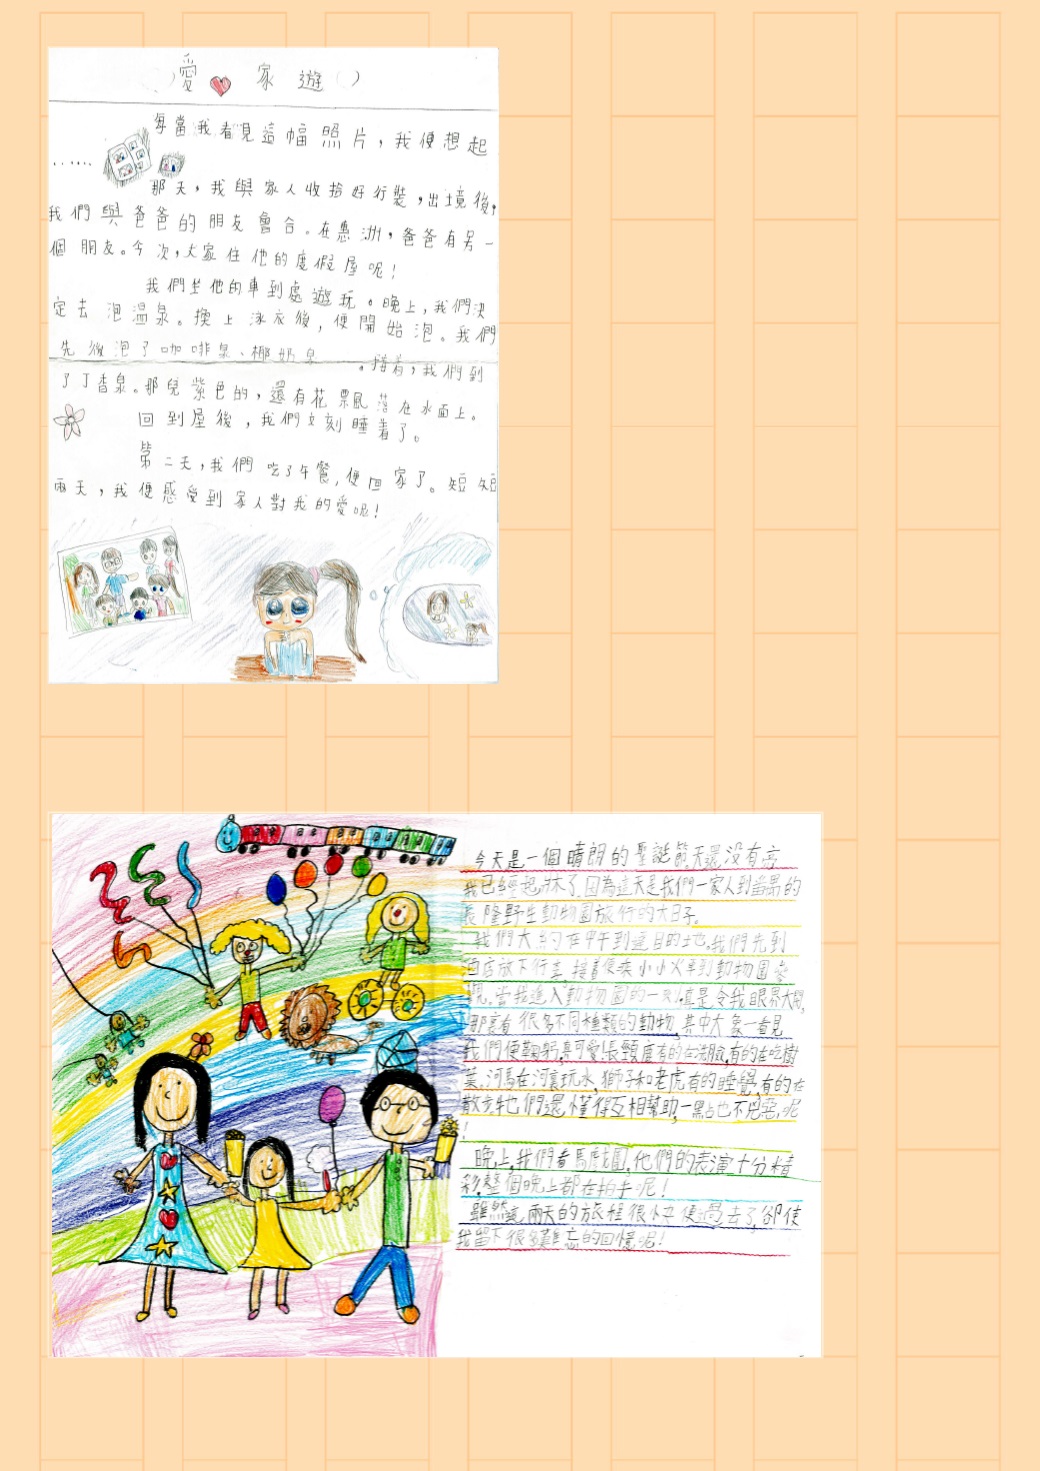 愛 家 遊
每當我看見這幅照片，我便想起
……
那天，我與家人收拾好行裝，出境後，
我們與爸爸的朋友會合。在惠洲，爸爸有另一
個朋友。今次，大家住他的度假屋呢！
我們坐他的車到處遊玩。晚上，我們決
定去泡溫泉。換上泳衣後，便開始泡。我們
先後泡了咖啡泉、椰奶泉。接着，我們到
了丁香泉。那兒紫色的，還有花飄落在水面上。
回到屋後，我們立刻睡着了。
第二天，我們吃了午餐，便回家了。短短
兩天，我便感受到家人對我的愛呢！
今天是一個晴朗的聖誕節，天還沒有亮
我已經起床了，因為這天是我們一家人到番禺的
長隆野生動物園旅行的大日子。
我們大約在中午到達目的地。我們先到
酒店放下行李，接着便乘小小火車到動物園參
觀。當我進入動物園的一刻，真是令我眼界大開，
那裏有很多不同種類的動物，其中大象一看見
我們便鞠躬，真可愛！長頸鹿有的在洗臉，有的在吃樹
葉，河馬在河裏玩水，獅子和老虎有的睡覺，有的在
散步，牠們還懂得互相幫助，一點也不兇惡呢
！
晚上，我們看馬戲團，他們的表演十分精
彩，整個晚上都在拍手呢！
雖然這兩天的旅程很快便過去了，卻使
我留下很多難忘的回憶呢！